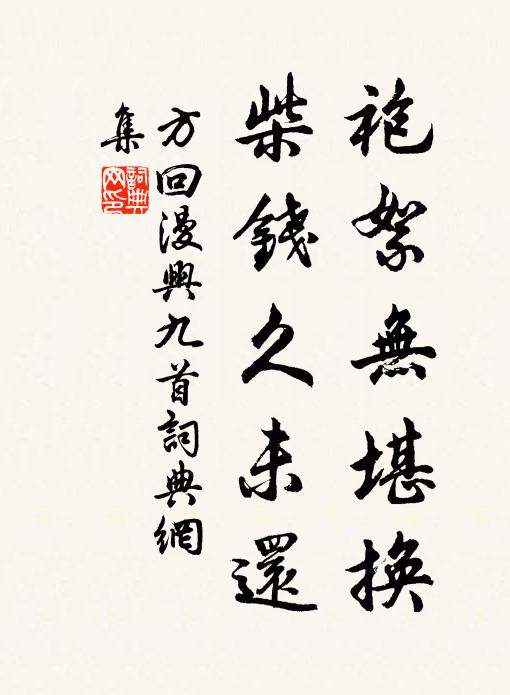 袍絮無堪換
柴錢久未還
方回漫興九首詞典網
集
詞典
网印